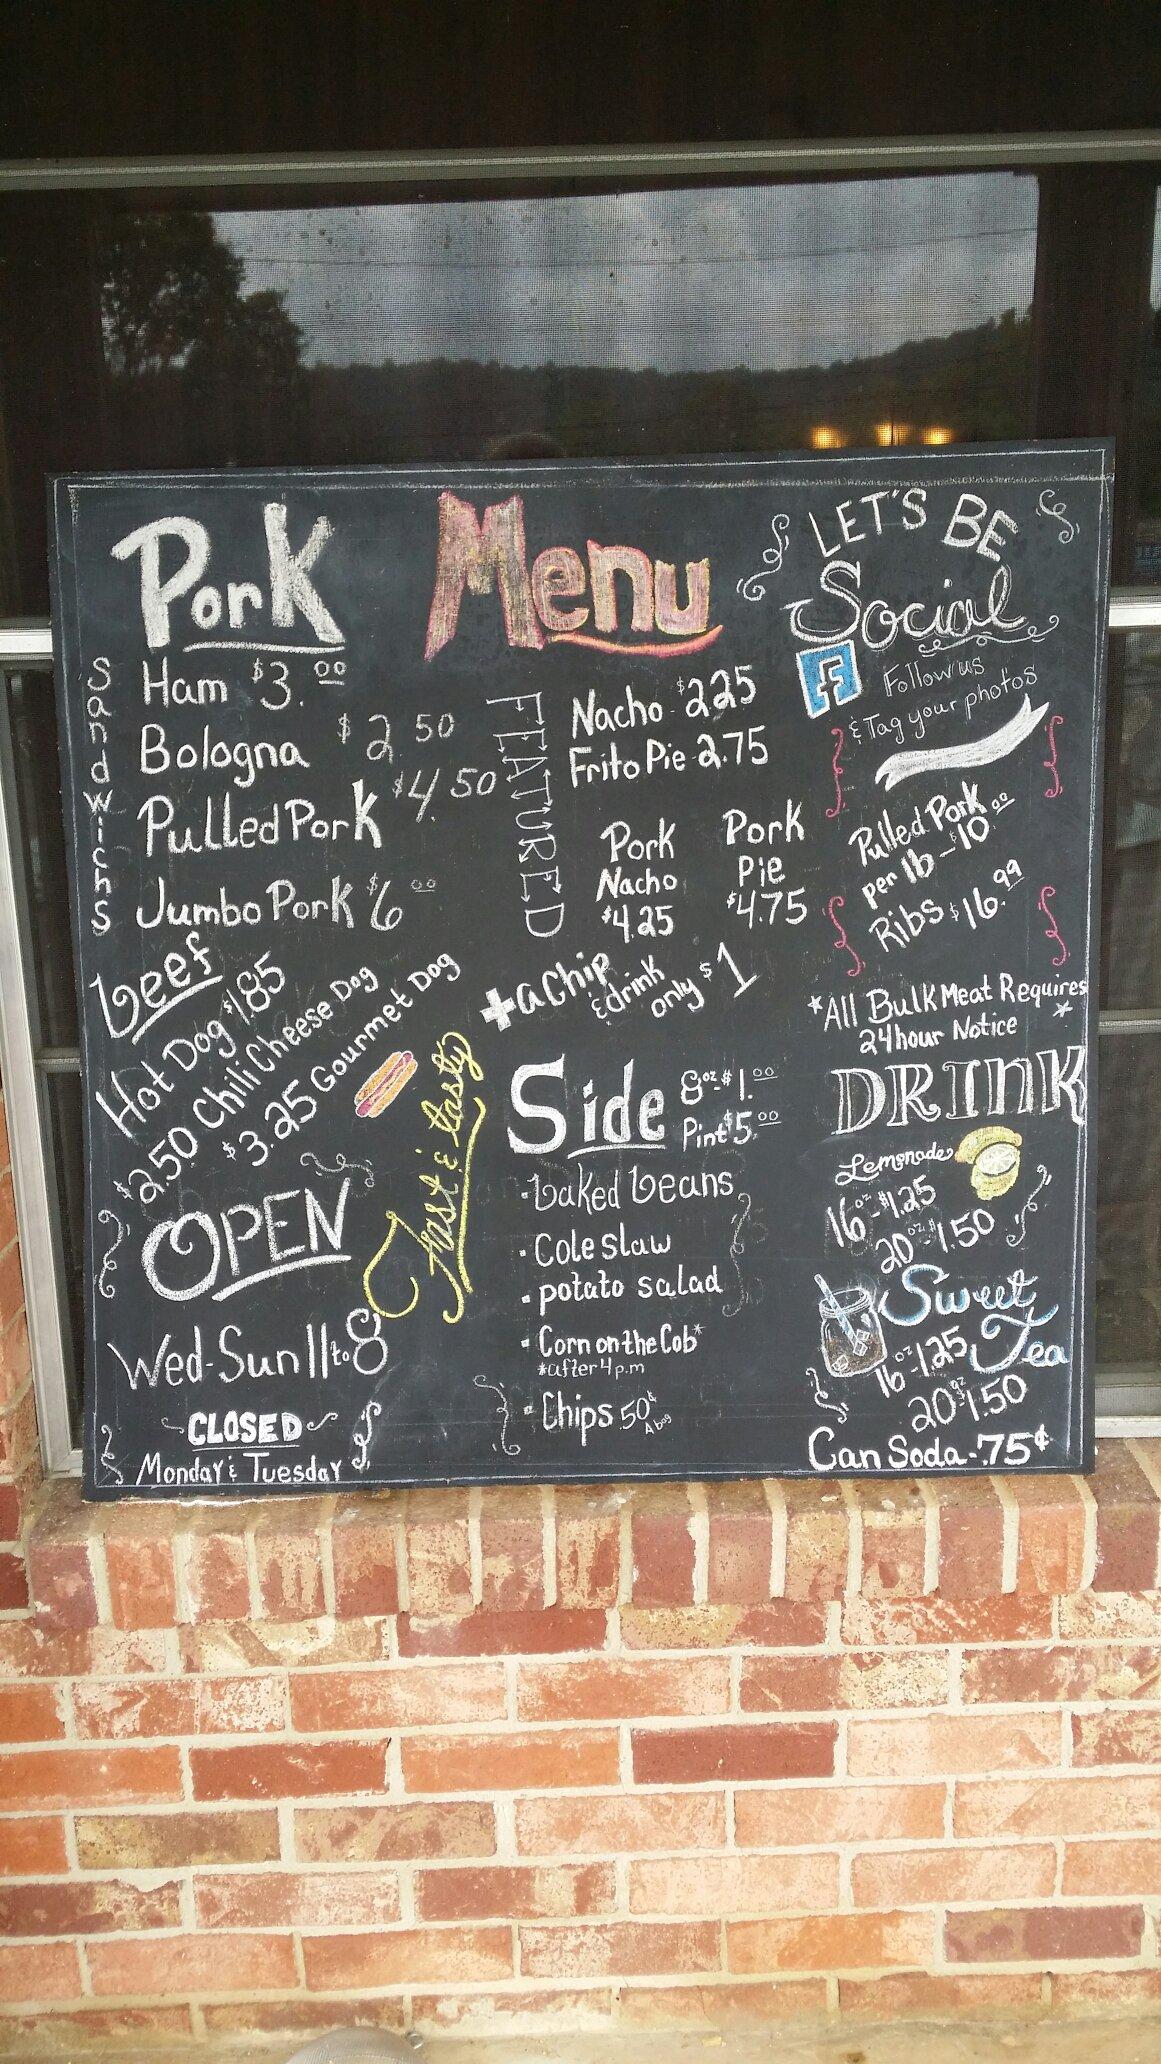 Menu
Pork
Sandwichs
Ham $3.00
Bologna $2.50
Pulled Pork $4.50
Jumbo Pork $6.00
Beef
Hot Dog $1.85
$2.50 Chili Cheese Dog
$3.25 Gourmet Dog
Fast & tasty
OPEN
Wed-Sun 11 to 8
CLOSED
Monday & Tuesday
FEATURED
Nacho $2.25
Frito Pie - 2.75
Pork
Nacho
$4.25
Pork
Pie
$4.75
+ a Chip
& drink
only $1
Side
8oz-$1.00
Pint $5.00
· baked beans
· Cole slaw
· potato salad
· Corn on the Cob*
*after 4 p.m
· Chips 50¢
A bag
LET'S BE
Social
f
Follow us
& Tag your photos
Pulled Pork
per lb - $10.00
Ribs $16.99
*All Bulk Meat Requires
24 hour Notice *
DRINK
Lemonade
16oz-$1.25
20oz $1.50
Sweet
Tea
16oz-1.25
20oz $1.50
Can Soda-.75¢